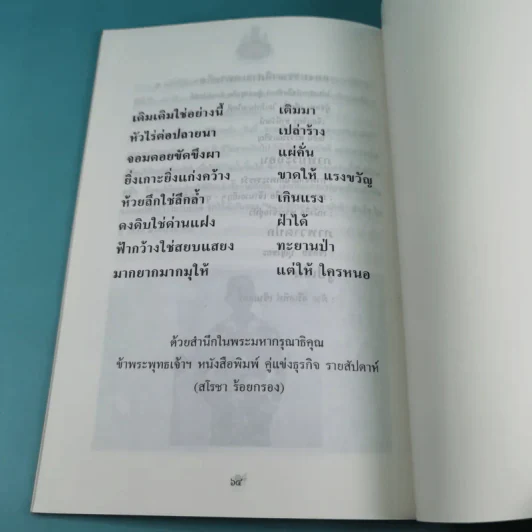 เดิมเดิมใช่อย่างนี้ เดิมมา
หัวไร่ต่อปลายนา เปล่าร้าง
จอมดอยขัดขึงผา แผ่คั่น
ยิ่งเกาะยิ่งแก่งคว้าง ขวาดให้ แรงขวัญ
ห้วยลึกใช่ลึกล้ำ เกินแรง
ดงดิบใช่ด่านแฝง ฝ่าได้
ฟ้ากว้างใช่สยบแสยง ทะยานป่า
มากยากมากมุให้ แต่ให้ ใครหนอ
ด้วยสำนึกในพระมหากรุณาธิคุณ
ข้าพระพุทธเจ้าฯ หนังสือพิมพ์ คู่แข่งธุรกิจ รายสัปดาห์
(สโรชา ร้อยกรอง)
๖๕